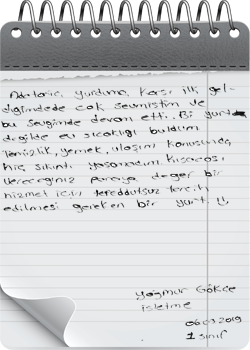 Adıların, yurduna karşı ilk gel-
diğimdede çok sevmiştim ve
bu sevgimde devam etti. Bi yurt
değilde ev sıcaklığı buldum
Temizlik, yemek, ulaşım konusunda
hiç sıkıntı yaşamadım Kısacası
Vereceğiniz paraya değer bir
hizmet için tereddütsüz tercih
edilmesi gereken bir yurt !!
Yağmur Gökçe
işletme
06.03.2019
1 sınıf